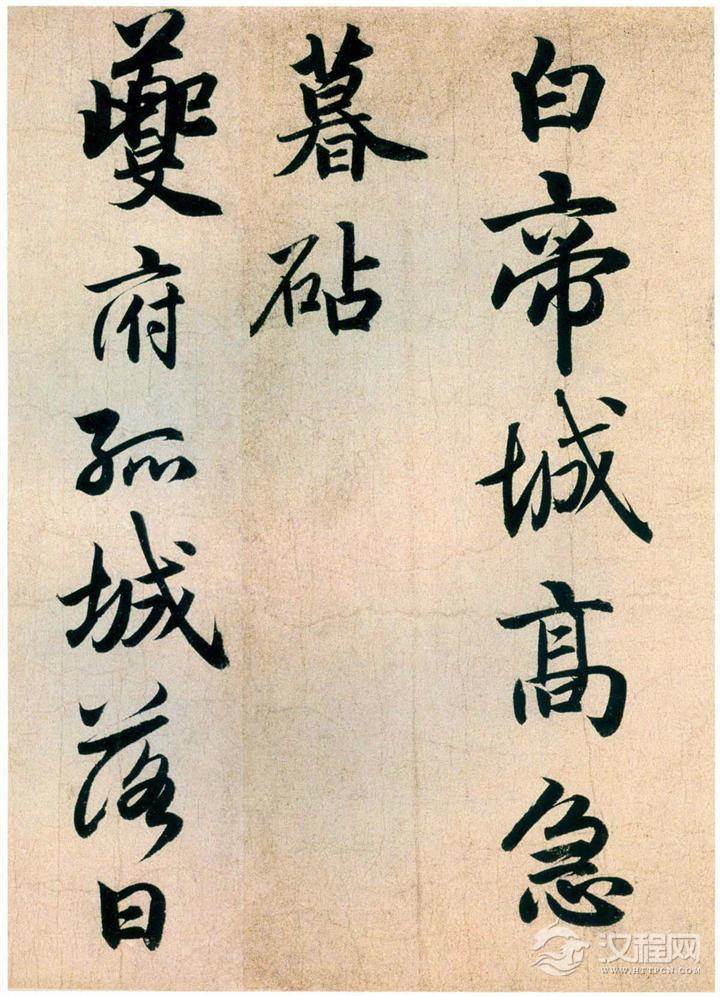 白帝城高急
暮砧
夔府孤城落日
汉程网
WWW.HTTPCN.COM